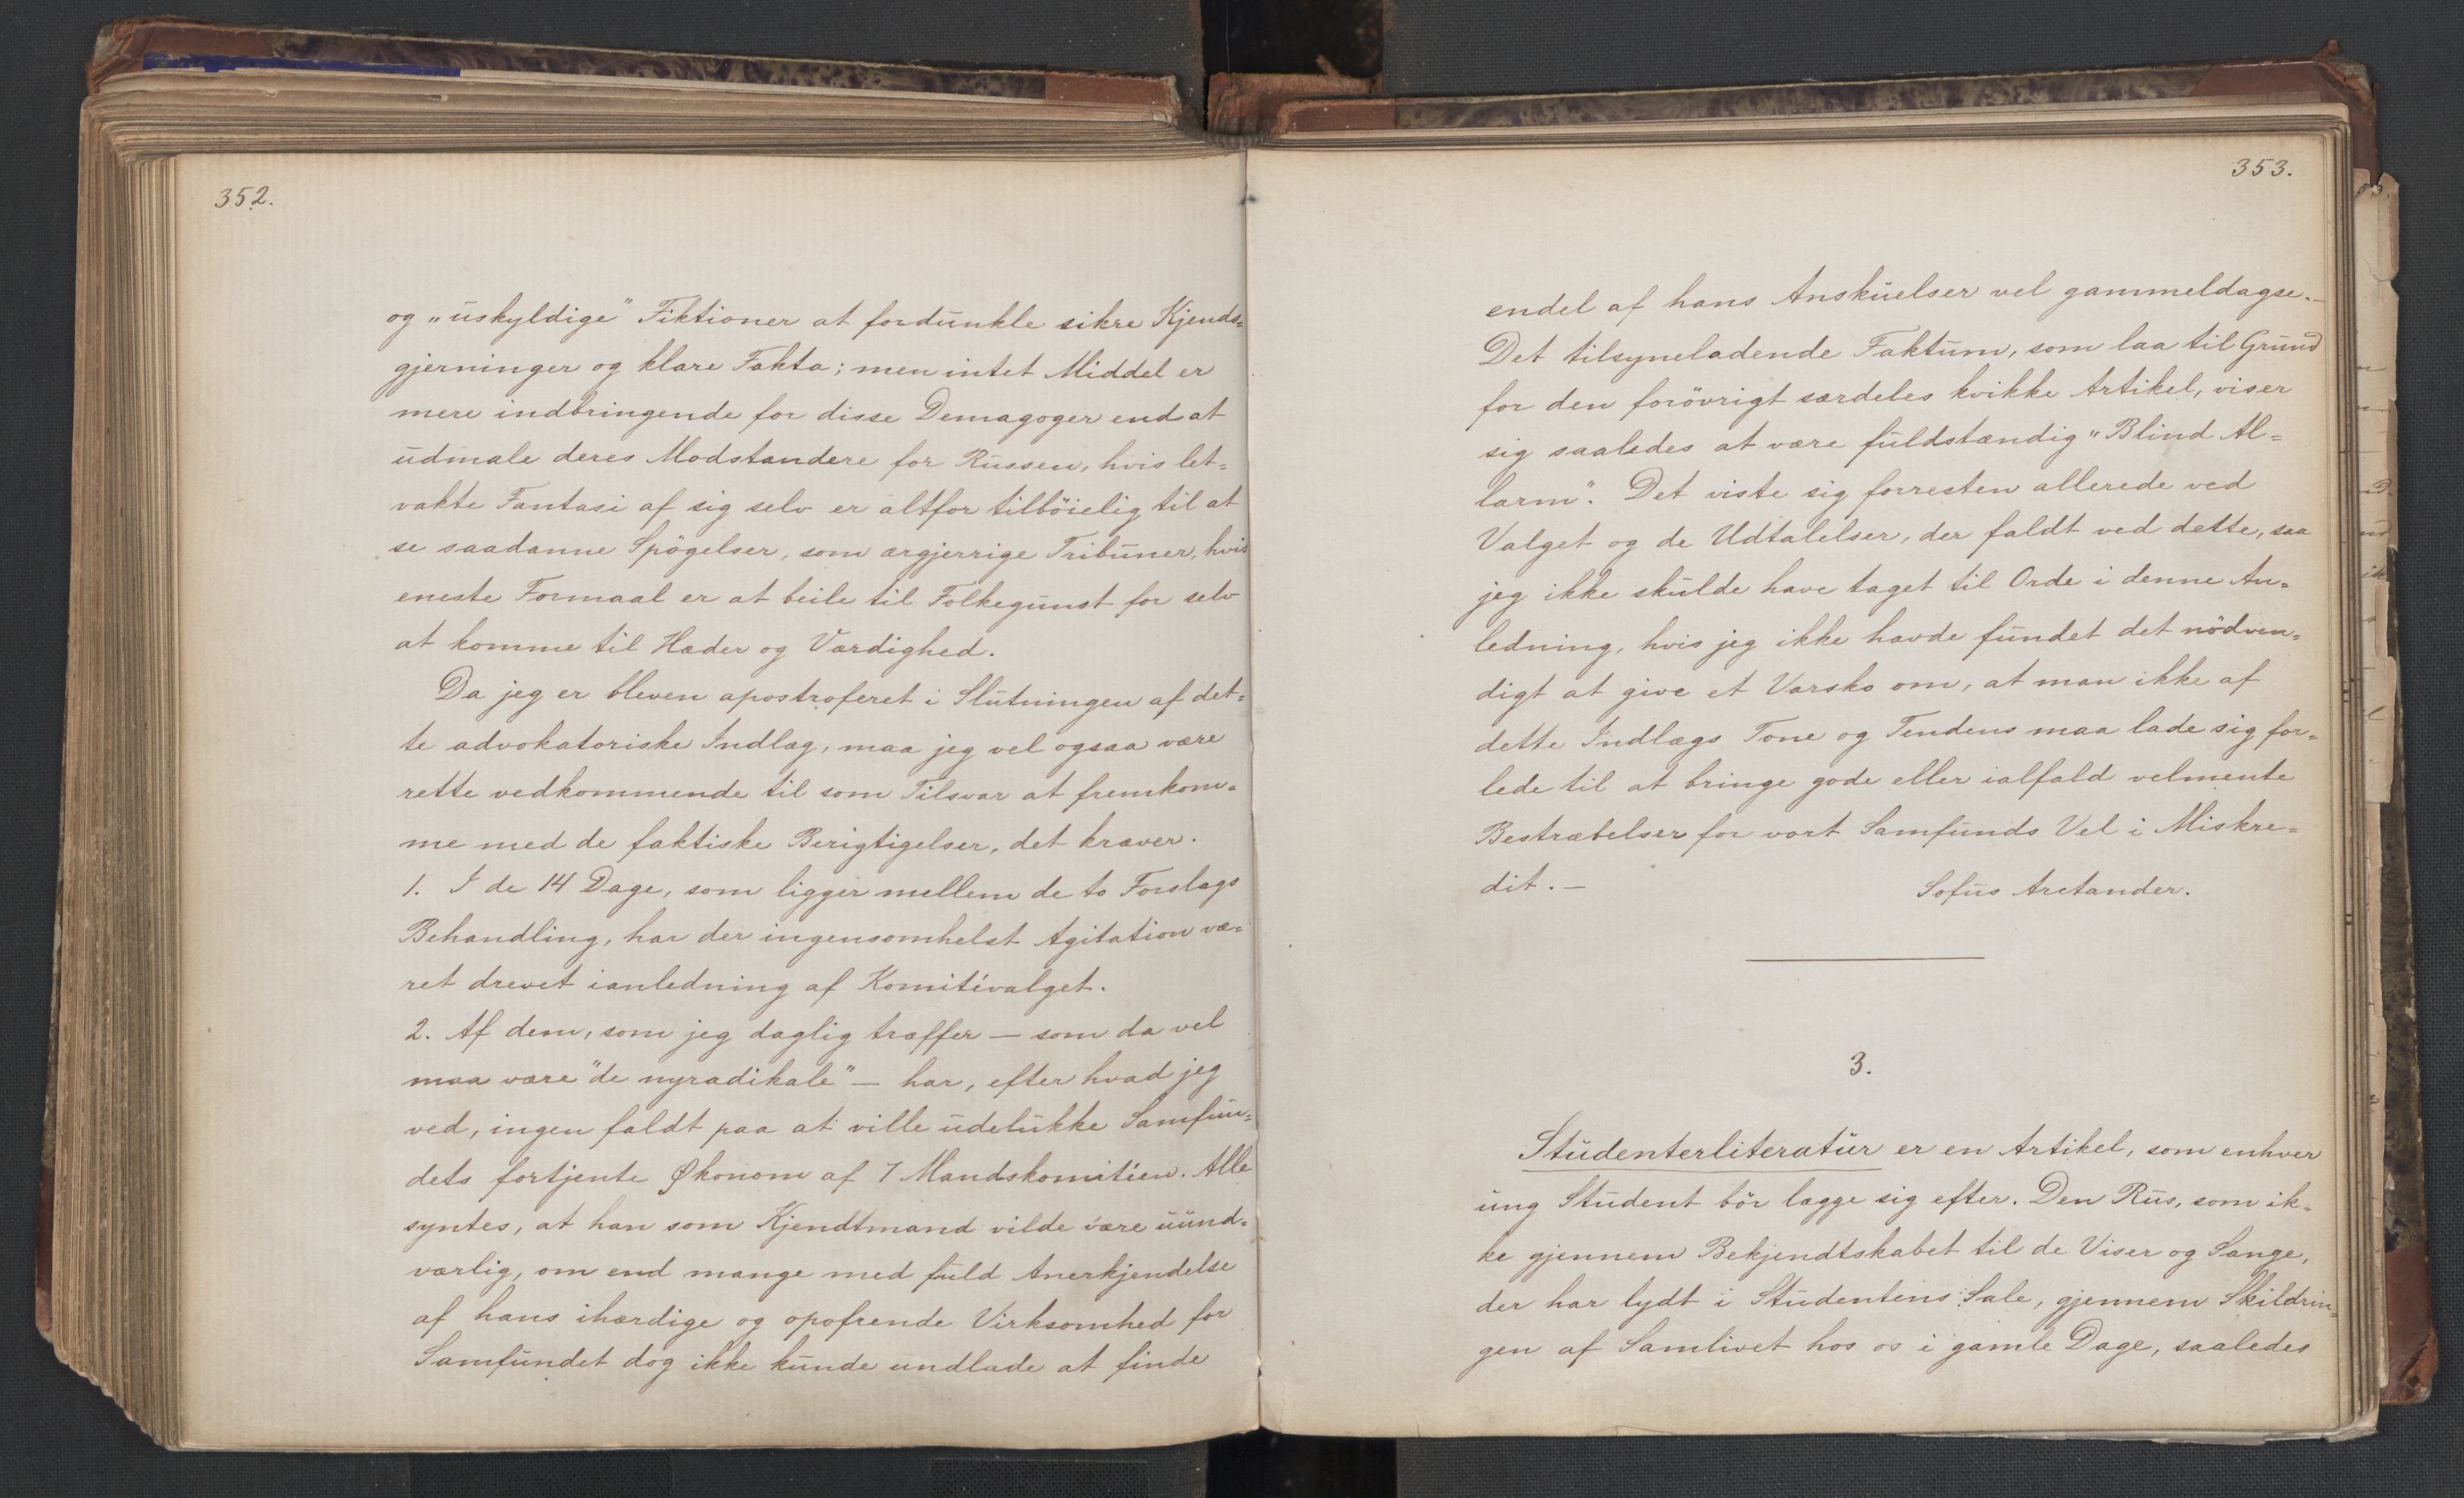 352.
og „uskyldige" Fiktioner at fordunkle sikre Kjends=
gjerninger og klare Fakta; men intet Middel er
mere indbringende for disse Demagoger end at
udmale deres Modstandere for Russen, hvis let=
vakte Fantasi af sig selv er altfor tilböielig til at
se saadanne Spögelser, som ærgjerrige Tribuner, hvis
eneste Formaal er at beile til Folkegunst for selv
at komme til Hæder og Værdighed.
Da jeg er bleven apostroferet i Slutningen af det=
te advokatoriske Indlæg, maa jeg vel ogsaa være
rette vedkommende til som Tilsvar at fremkom=
me med de faktiske Berigtigelser, det kræver.
1. I de 14 Dage, som ligger mellem de to Forslags
Behandling, har der ingensomhelst Agitation væ=
ret drevet ianledning af Komitévalget.
2. Af dem, som jeg daglig træffer — som da vel
maa være "de nyradikale" — har, efter hvad jeg
ved, ingen faldt paa at ville udelukke Samfun=
dets fortjente Økonom af 7 Mandskomitéen. Alle
syntes, at han som Kjendtmand vilde være uund=
værlig, om end mange med fuld Anerkjendelse
af hans ihærdige og opofrende Virksomhed for
Samfundet dog ikke kunde undlade at finde
353.
endel af hans Anskuelser vel gammeldagse. —
Det tilsyneladende Faktum, som laa til Grund
for den forövrigt særdeles kvikke Artikel, viser
sig saaledes at være fuldstændig "Blind Al=
larm". Det viste sig forresten allerede ved
Valget og de Udtalelser, der faldt ved dette, saa
jeg ikke skulde have taget til Orde i denne An=
ledning, hvis jeg ikke havde fundet det nödven=
digt at give et Varsko om, at man ikke af
dette Indlægs Tone og Tendens maa lade sig for=
lede til at bringe gode eller ialfald velmente
Bestræbelser for vort Samfunds Vel i Miskre=
dit. — Sofus Arctander.
3.
Studenterliteratur er en Artikel, som enhver
ung Student bör lægge sig efter. Den Rus, som ik=
ke gjennem Bekjendtskabet til de Viser og Sange,
der har lydt i Studentens Sale, gjennem Skildrin=
gen af Samlivet hos os i gamle Dage, saaledes